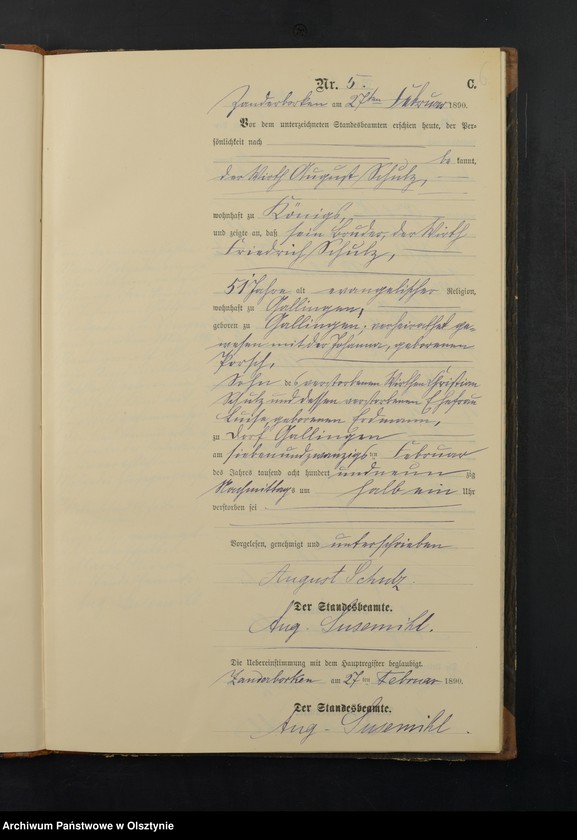 Nr. 5. C.
Zanderborken am 27ten Februar 1890.
Vor dem unterzeichneten Standesbeamten erschien heute, der Per-
sönlichkeit nach
be kannt,
der Wirth August Schulz,
wohnhaft zu Königs,
und zeigte an, daß sein Bruder, der Wirth
Friedrich Schulz,
51 Jahre alt evangelischer Religion,
wohnhaft zu Gallingen,
geboren zu Gallingen, verheirathet ge-
wesen mit der Johanna, geborenen
Porsch,
Sohn des verstorbenen Wirthen Christian
Schulz und dessen verstorbenen Ehefrau
Luise, geborenen Erdmann,
zu Dorf Gallingen
am siebenundzwanzigsten Februar
des Jahres tausend acht hundert und neun zig
Nachmittags um halb ein Uhr
verstorben sei.
Vorgelesen, genehmigt und unterschrieben
August Schulz.
Der Standesbeamte.
Aug. Susemihl.
Die Uebereinstimmung mit dem Hauptregister beglaubigt.
Zanderborken am 27ten Februar 1890.
Der Standesbeamte.
Aug. Susemihl.
Archiwum Państwowe w Olsztynie